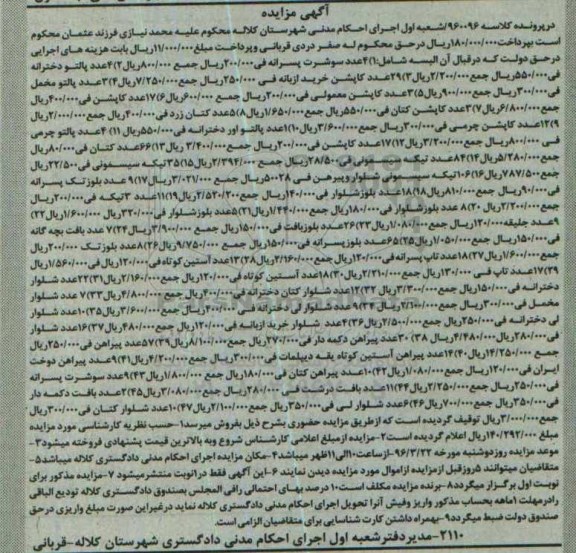 آگهی مزایده
درپرونده کلاسه ۹۶۰۰۹۶/شعبه اول اجرای احکام مدنی شهرستان کلاله محکوم علیه محمد نیازی فرزند عثمان محکوم
است بپرداخت۱۸۰/۰۰۰/۰۰۰ریال درحق محکوم له صفر دردی قربانی وپرداخت مبلغ۱۱/۰۰۰/۰۰۰ریال بابت هزینه های اجرایی
درحق دولت که درقبال آن البسه شامل:۱)۴عدد سوشرت پسرانه فی۲۰۰/۰۰۰ریال جمع ۸۰۰/۰۰۰ریال۲)۴عدد پالتو دخترانه
فی۵۵۰/۰۰۰ریال جمع۲/۲۰۰/۰۰۰ریال۳)۲۹عدد کاپشن خرید ازبانه فی ۲۵۰/۰۰۰ریال جمع۷/۲۵۰/۰۰۰ریال۴)۳عدد پالتو مخمل
فی۳۰۰/۰۰۰ریال جمع۹۰۰/۰۰۰ریال۵)۳عدد کاپشن معمولی فی۲۰۰/۰۰۰ریال جمع ۶۰۰/۰۰۰ریال۶)۱۷عدد کاپشن فی۴۰۰/۰۰۰ریال
جمع۶/۸۰۰/۰۰۰ریال۷)۳عدد کاپشن کتان فی۵۵۰/۰۰۰ریال جمع۱/۶۵۰/۰۰۰ریال۸)۵عدد کتان زرد فی۴۰۰/۰۰۰ریال جمع۲/۰۰۰/۰۰۰ریال
۹)۱۲عدد کاپشن چرمی فی۳۰۰/۰۰۰ریال جمع۳/۶۰۰/۰۰۰ریال۱۰)۱عدد پالتو اور دخترانه فی۵۵۰/۰۰۰ریال ۱۱) ۴عدد پالتو چرمی
فی ۸۰۰/۰۰۰ریال جمع۳/۲۰۰/۰۰۰ریال۱۲)۱۷عدد کاپشن فی۲۰۰/۰۰۰ریال جمع۳/۴۰۰/۰۰۰ ریال۱۳)۶۶عدد کتان فی۸۰/۰۰۰ریال
جمع۵/۲۸۰/۰۰۰ریال۱۴)۸۴عدد تیکه سیسمونی فی۲۸/۵۰۰ریال جمع ۲/۳۹۴/۰۰۰ریال۱۵)۳۵تیکه سیسمونی فی۲۲/۵۰۰ریال
جمع۷۸۷/۵۰۰ریال۱۶)۱۰۶تیکه سیسمونی شلوار وپیرهن فی ۲۸۵۰۰ریال جمع ۳/۰۲۱/۰۰۰ریال۱۷)۹ عدد بلوزتک پسرانه
فی۹۰/۰۰۰ریال جمع۸۱۰/۰۰۰ریال۱۸)۱۸عدد بلوزشلوار فی۱۴۰/۰۰۰ریال جمع۲/۵۲۰/۳۰۰ریال۱۹)۱۱عدد ۳تیکه فی۲۰۰/۰۰۰ریال
جمع۲/۲۰۰/۰۰۰ریال ۲۰)۸ عدد بلوزشلوار فی۱۸۰/۰۰۰ریال جمع۱/۴۴۰/۰۰۰ریال۲۱)۵عدد بلوزشلوار فی۳۲۰/۰۰۰ریال ۱/۶۰۰/۰۰۰ریال۲۲)
۹عدد جلیقه۱۲۰/۰۰۰ریال جمع۱/۰۸۰/۰۰۰ریال۲۳)۲۶عدد بلوزبافت فی۱۵۰/۰۰۰ریال جمع۳/۹۰۰/۰۰۰ریال۲۴)۷ عدد بافت بچه گانه
فی۱۵۰/۰۰۰ریال جمع۱/۰۵۰/۰۰۰ریال۲۵)۶۵عدد بلوزپسرانه فی۱۵۰/۰۰۰ریال جمع ۹/۷۵۰/۰۰۰ریال۲۶)۸عدد بلوزتک ۲۰۰/۰۰۰ریال
جمع۱/۶۰۰/۰۰۰ریال۲۷)۱۸عدد تاپ پسرانه فی۱۲۰/۰۰۰ریال جمع۲/۱۶۰/۰۰۰ریال۲۸)۱۳عدد آستین کوتاه فی۱۲۰/۰۰۰ریال فی۱/۵۶۰/۰۰۰ریال
۲۹)۱۷عدد تاپ فی ۱۳۰/۰۰۰ریال جمع۲/۲۱۰/۰۰۰ریال۳۰)۱۸عدد آستین کوتاه فی۱۲۰/۰۰۰ریال جمع۲/۱۶۰/۰۰۰ریال۳۱)۲۲عدد شلوار
دخترانه فی۱۵۰/۰۰۰ریال جمع۳/۳۰۰/۰۰۰ریال ۳۲)۱۲عدد شلوار کتان دخترانه فی۴۰۰/۰۰۰ریال جمع۴/۸۰۰/۰۰۰ریال۳۳)۷ عدد شلوار
مخمل فی۳۰۰/۰۰۰ریال جمع۲/۱۰۰/۰۰۰ریال۳۴)۹عدد شلوار لی دخترانه فی ۴۰۰/۰۰۰ریال جمع۳/۶۰۰/۰۰۰ریال۳۵)۱۰عدد شلوار
لی دخترانه فی۲۵۰/۰۰۰ریال جمع۲/۵۰۰/۰۰۰ریال۳۶)۴عدد شلوار خرید ازبانه فی۱۲۰/۰۰۰ریال جمع۴۸۰/۰۰۰ریال۳۷)۱۶عدد شلوار
فی۲۸۰/۰۰۰ریال۴/۴۸۰/۰۰۰ریال ۳۸)۳۰ عدد پیراهن دکمه دار فی۲۷۰/۰۰۰ریال جمع۸/۱۰۰/۰۰۰ریال۳۹)۵۷عدد پیراهن فی۲۵۰/۰۰۰ریال
جمع ۱۴/۲۵۰/۰۰۰ریال۴۰)۱۴عدد پیراهن آستین کوتاه یقه دیپلمات فی۳۰۰/۰۰۰ریال جمع۴/۲۰۰/۰۰۰ریال۴۱)۹عدد پیراهن دوخت
ایران فی۱۲۰/۰۰۰ریال جمع۱/۰۸۰/۰۰۰ریال۴۲)۱۰عدد پیراهن کتان فی۱۸۰/۰۰۰ریال جمع ۱/۸۰۰/۰۰۰ریال۴۳)۹عدد سوشرت پسرانه
فی۲۵۰/۰۰۰ریال جمع۲/۲۵۰/۰۰۰ریال۴۴)۱۱عدد بافت درشت فی ۲۸۰/۰۰۰ریال جمع۳/۰۸۰/۰۰۰ریال۴۵)۲عدد بافت دکمه دار
فی۳۵۰/۰۰۰ریال جمع۷۰۰/۰۰۰ریال۴۶)۶عدد شلوار لی فی۳۵۰/۰۰۰ریال جمع۲/۱۰۰/۰۰۰ریال۴۷)۱۰عدد شلوار کتان فی۳۰۰/۰۰۰ریال
جمع۳/۰۰۰/۰۰۰ریال توقیف گردیده است که ازطریق مزایده حضوری بشرح ذیل بفروش میرسد۱-حسب نظریه کارشناسی مورد مزایده
مبلغ ۱۴۰/۲۹۲/۰۰۰ریال اعلام گردیده است۲-مزایده ازمبلغ اعلامی کارشناس شروع وبه بالاترین قیمت پیشنهادی فروخته میشود۳-
موعد مزایده روزدوشنبه مورخه ۹۶/۳/۲۲-ازساعت۱۰الی۱۱ظهر میباشد۴-مکان مزایده اجرای احکام مدنی دادگستری کلاله میباشد۵-
متقاضیان میتوانند ۵روزقبل ازمزایده ازاموال مورد مزایده دیدن نمایند ۶-این آگهی فقط درانوبت منتشرمیشود ۷-مزایده مذکور برای
نوبت اول برگزار میگردد۸-برنده مزایده مکلف است۱۰ درصد بهای احتمالی رافی المجلس بصندوق دادگستری کلاله تودیع الباقی
رادرمهلت ۱ماهه بحساب مذکور واریز وفیش آنرا تحویل اجرای احکام مدنی دادگستری کلاله نماید درغیراین صورت مبلغ واریزی درحق
صندوق دولت ضبط میگردد۹-بهمراه داشتن کارت شناسایی برای متقاضیان الزامی است.
۲۱۱۰-مدیردفترشعبه اول اجرای احکام مدنی دادگستری شهرستان کلاله-قربانی